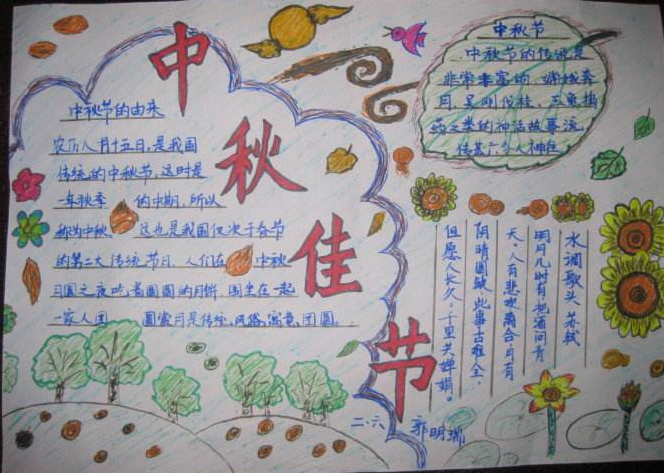 中秋佳节
中秋节的由来
农历八月十五日,是我国
传统的中秋节,这时是
一年秋季 的中期,所以
称为中秋 这也是我国仅次于春节
的第二大传统节日,人们在 中秋
月圆之夜吃着圆圆的月饼,围坐在一起
一家人团 圆赏月是传统风俗,寓意,团圆。
中秋节
中秋节的传说是
非常丰富的,嫦娥奔
月,吴刚伐桂,玉兔捣
药之类的神话故事流
传甚广令人神往。
水调歌头 苏轼
明月几时有把酒问青
天。人有悲欢离合月有
阴晴圆缺此事古难全。
但愿人长久,千里共婵娟。
二.六 郭明